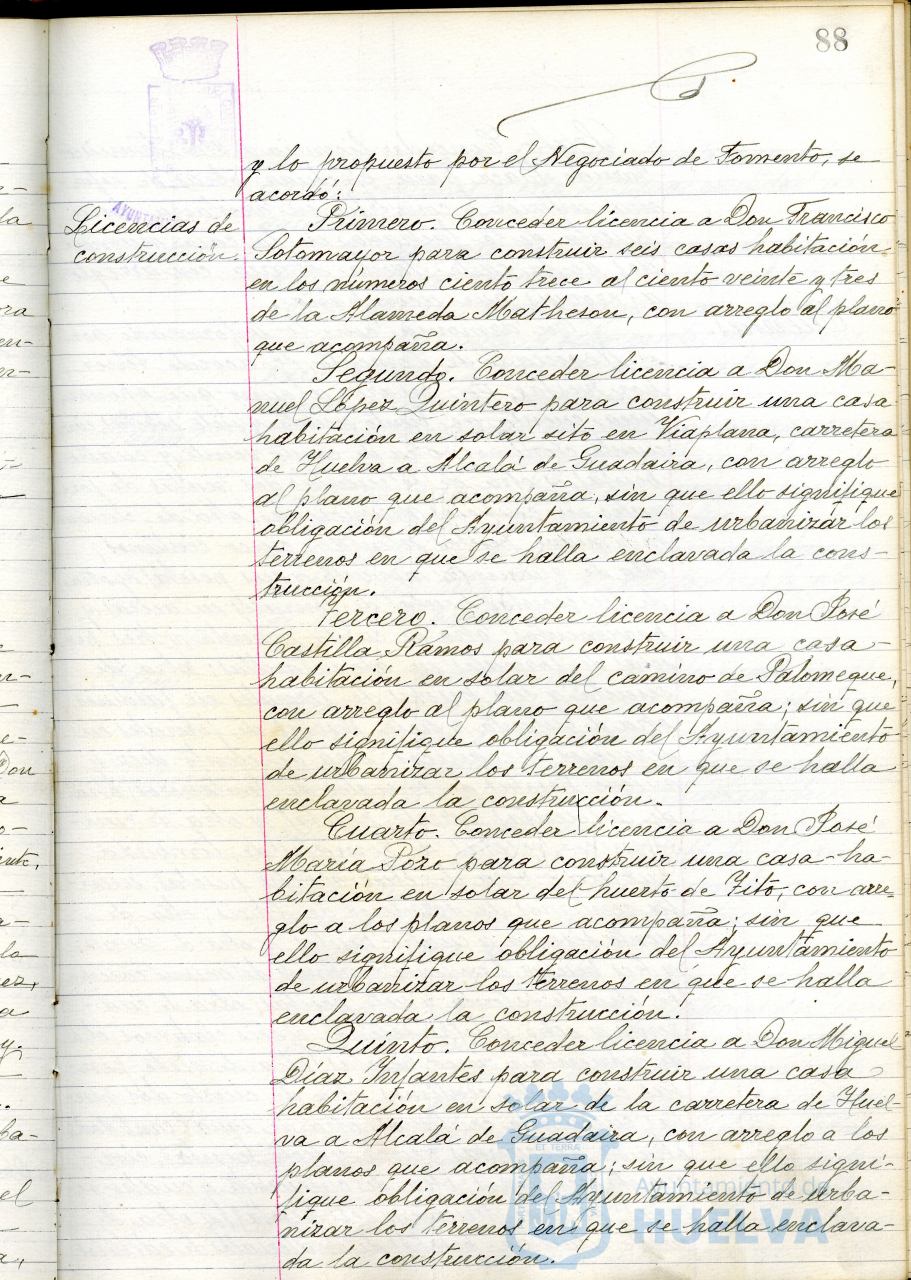 88
y lo propuesto por el Negociado de Fomento, se
acordó:
Licencias de
construcción.
Primero. Conceder licencia a Don Francisco
Sotomayor para construir seis casas habitación
en los números ciento trece al ciento veinte y tres
de la Alameda Matheson, con arreglo al plano
que acompaña.
Segundo. Conceder licencia a Don Ma-
nuel López Quintero para construir una casa
habitación en solar sito en Viaplana, carretera
de Huelva a Alcalá de Guadaira, con arreglo
al plano que acompaña, sin que ello signifique
obligación del Ayuntamiento de urbanizar los
terrenos en que se halla enclavada la cons-
trucción.
Tercero. Conceder licencia a Don José
Castilla Ramos para construir una casa-
habitación en solar del camino de Palomeque,
con arreglo al plano que acompaña; sin que
ello signifique obligación del Ayuntamiento
de urbanizar los terrenos en que se halla
enclavada la construcción.
Cuarto. Conceder licencia a Don José
María Pozo para construir una casa-ha-
bitación en solar del huerto de Tito, con arre-
glo a los planos que acompaña; sin que
ello signifique obligación del Ayuntamiento
de urbanizar los terrenos en que se halla
enclavada la construcción.
Quinto. Conceder licencia a Don Miguel
Díaz Infantes para construir una casa
habitación en solar de la carretera de Huel-
va a Alcalá de Guadaira, con arreglo a los
planos que acompaña; sin que ello signi-
fique obligación del Ayuntamiento de urba-
nizar los terrenos en que se halla enclava-
da la construcción.
Ayuntamiento de
HUELVA